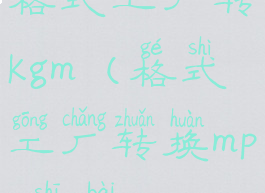 格式工厂转
gé shì
kgm（格式
gōng chǎng zhuǎn huàn
工厂转换mp
shī bài